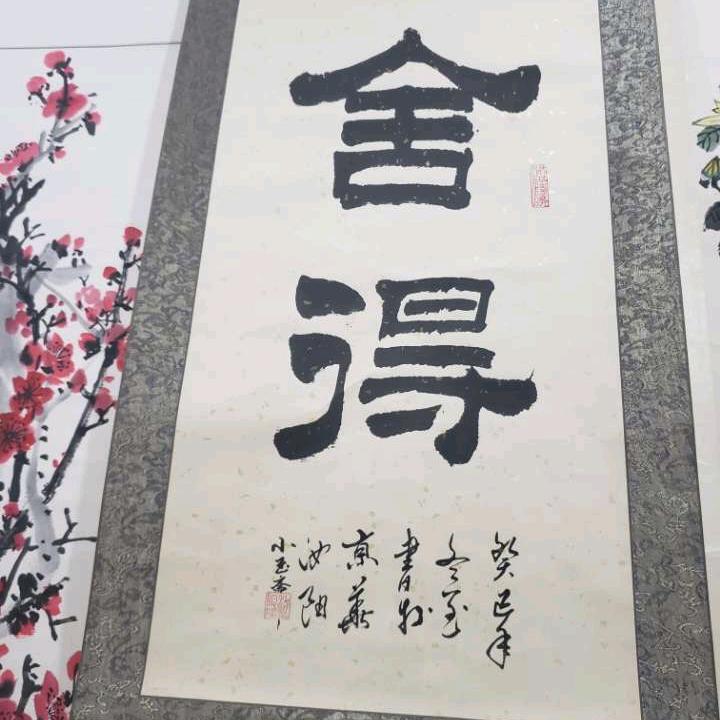 舍得
癸巳年
冬至
書於
京華
汝陽
小玉